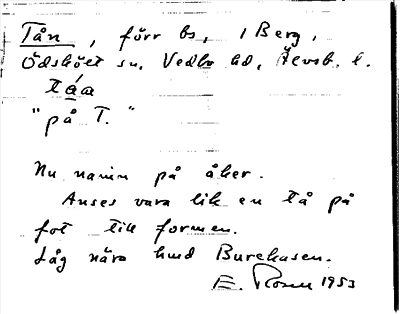 Tån, förr bs, i Berg,
Ödshöet sn. Vedbo hd, Älvsb. l.
táa
"på T."
Nu namn på åker.
Anses vara lik en tå på
fot till formen.
Låg nära hmd Burekasen.
E. Rosen 1953